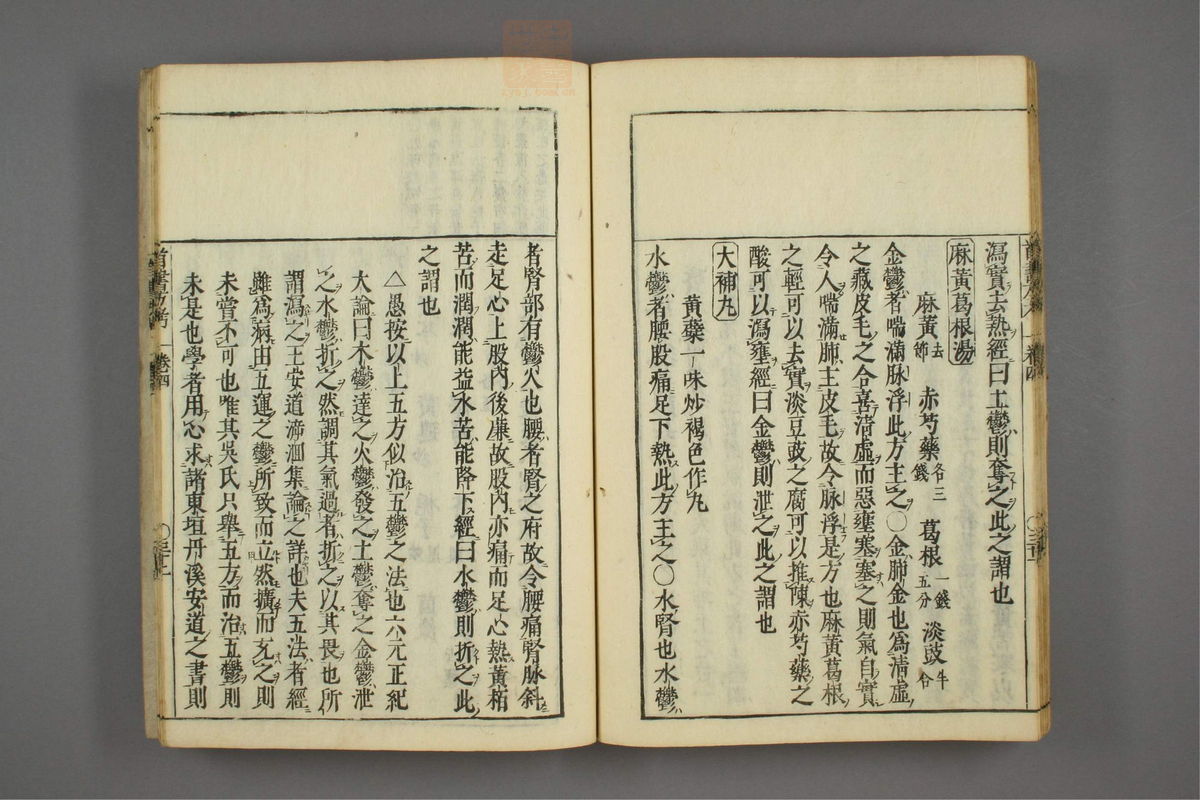 瀉實去熱經曰土鬱則奪之此之謂也
麻黃葛根湯
麻黃去節 赤芍藥各三錢 葛根一錢五分 淡豉半合
金鬱者喘滿脉浮此方主之○金肺金也爲清虛
之藏皮毛之合喜清虛而惡壅塞塞之則氣自實
令人喘滿肺主皮毛故令脉浮是方也麻黃葛根
之輕可以去實淡豆豉之腐可以推陳赤芍藥之
酸可以瀉壅經曰金鬱則泄之此之謂也
大補丸
黃蘗一味炒褐色作丸
水鬱者腰股痛足下熱此方主之○水腎也水鬱
者腎部有鬱火也腰者腎之府故令腰痛腎脉斜
走足心上股內後廉故股內亦痛而足心熱黃栢
苦而潤潤能益水苦能降下經曰水鬱則折之此
之謂也
△愚按以上五方似治五鬱之法也六元正紀
大論曰木鬱達之火鬱發之土鬱奪之金鬱泄
之水鬱折之然調其氣過者折之以其畏也所
謂瀉之王安道泝洄集論之詳也夫五法者經
雖爲病由五運之鬱所致而立然擴而充之則
未嘗不可也唯其吳氏只舉五方而治五鬱則
未是也學者用心求諸東垣丹溪安道之書則
卷四